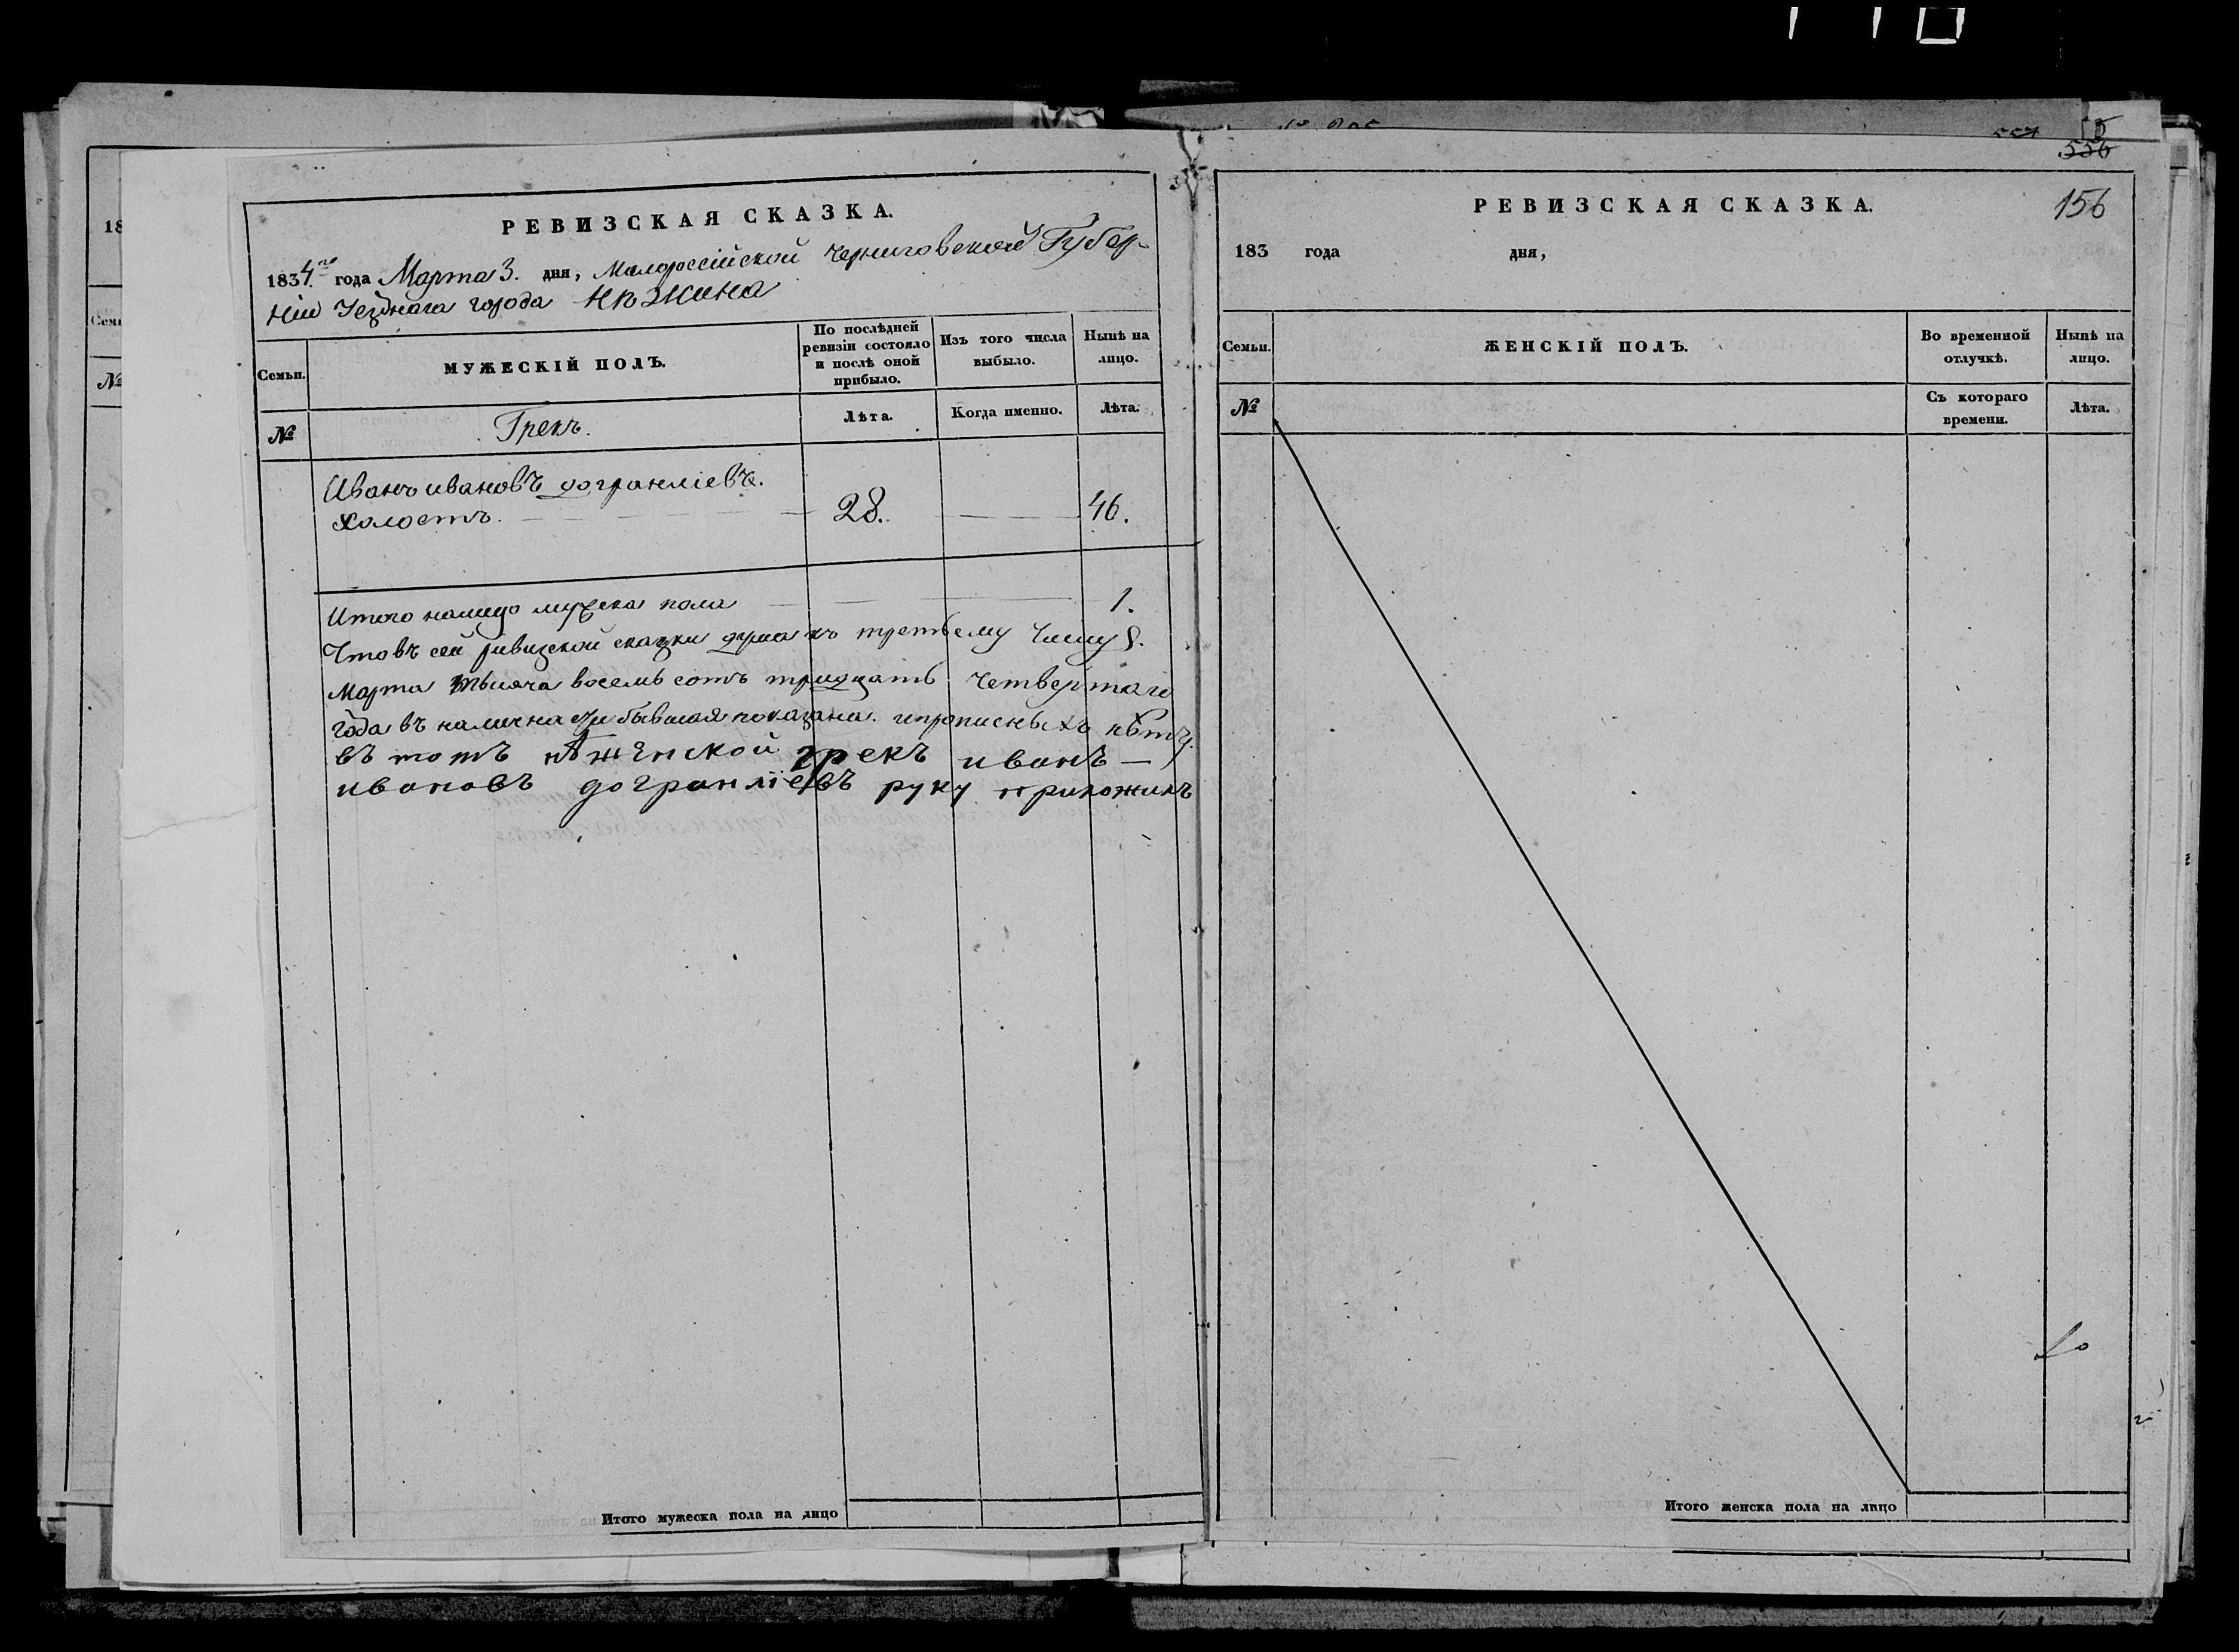 557
5
556
РЕВИЗСКАЯ СКАЗКА.
1834го года Марта 3. дня, Малороссійской Черниговской Губер-
ніи Уезднага города Нѣжина
Семьи.
МУЖЕСКІЙ ПОЛЪ.
По послѣдней ревизіи состояло и послѣ оной прибыло.
Изъ того числа выбыло.
Нынѣ на лицо.
№
Грекъ.
Лѣта.
Когда именно.
Лѣта.
Иванъ ивановъ догранліевъ.
холостъ. 28. 46.
Итого налицо мужеска пола 1.
Что въ сей ривизской сказки душа къ третьему Числу
Марта тысяча восемь сотъ тридцать четвертаго
года въ наличнасти бывшая показана. ипрописныхъ нѣту.
въ томъ нѣженской грекъ иванъ —
ивановъ догранліевъ руку приложилъ
Итого мужеска пола на лицо
РЕВИЗСКАЯ СКАЗКА.
156
183 года дня,
Семьи.
ЖЕНСКІЙ ПОЛЪ.
Во временной отлучкѣ.
Нынѣ на лицо.
№
Съ котораго времени.
Лѣта.
Итого женска пола на лицо
18
№